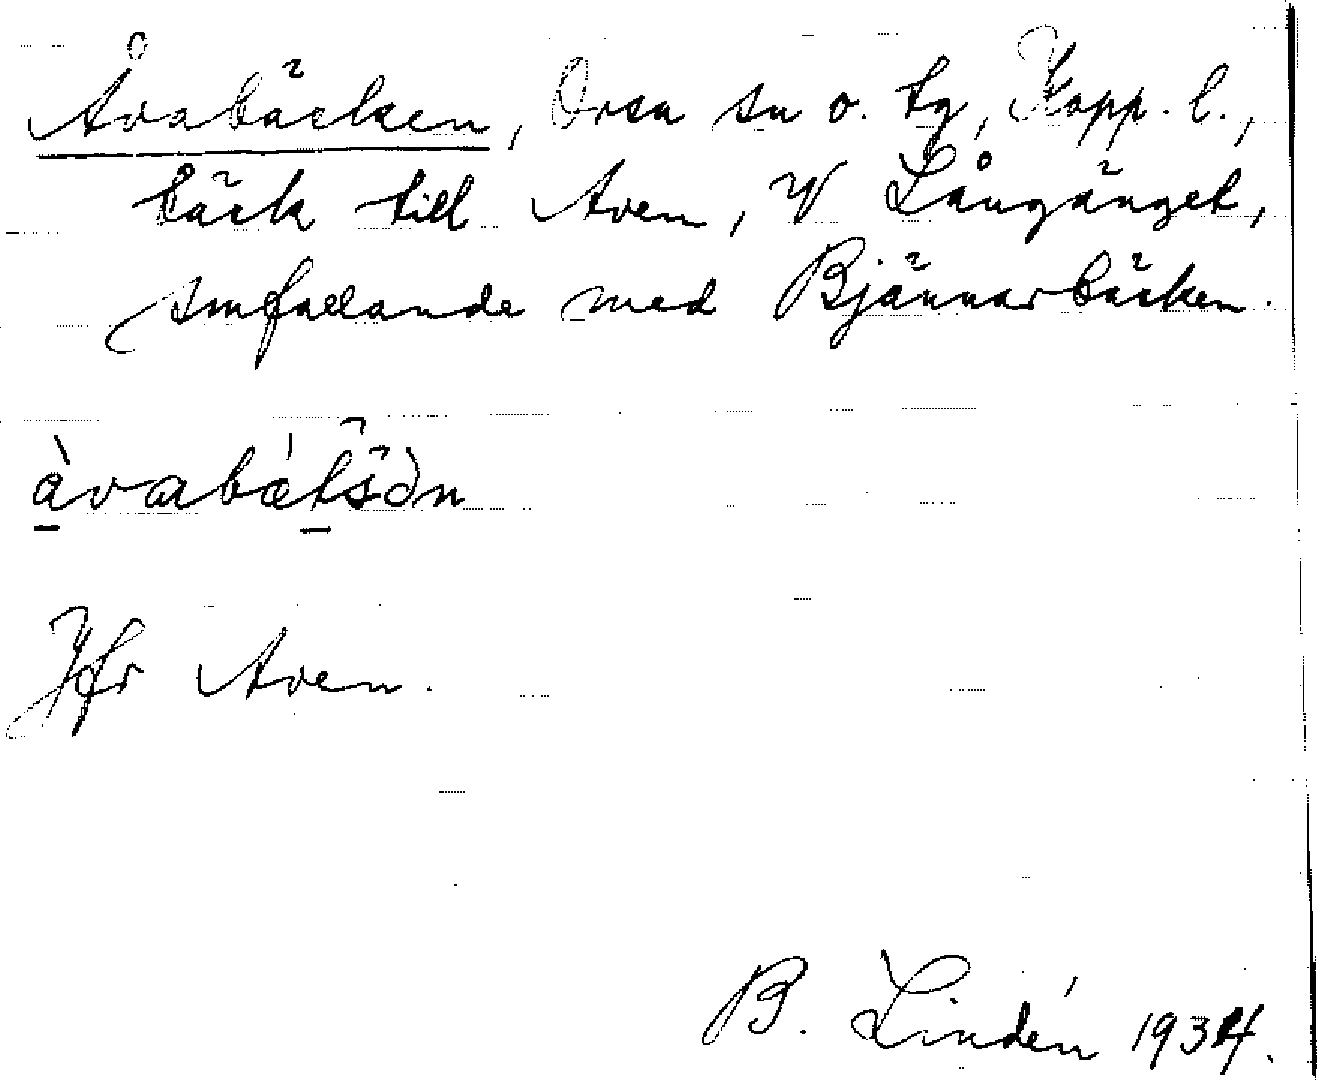 Åvabäcken, Orsa sn o. tg, Kopp. l.,
bäck till Aven, V Långänget,
smfallande med Bjännarbäcken.
àvabætšən
Jfr Aven.
B. Lindén 1934.